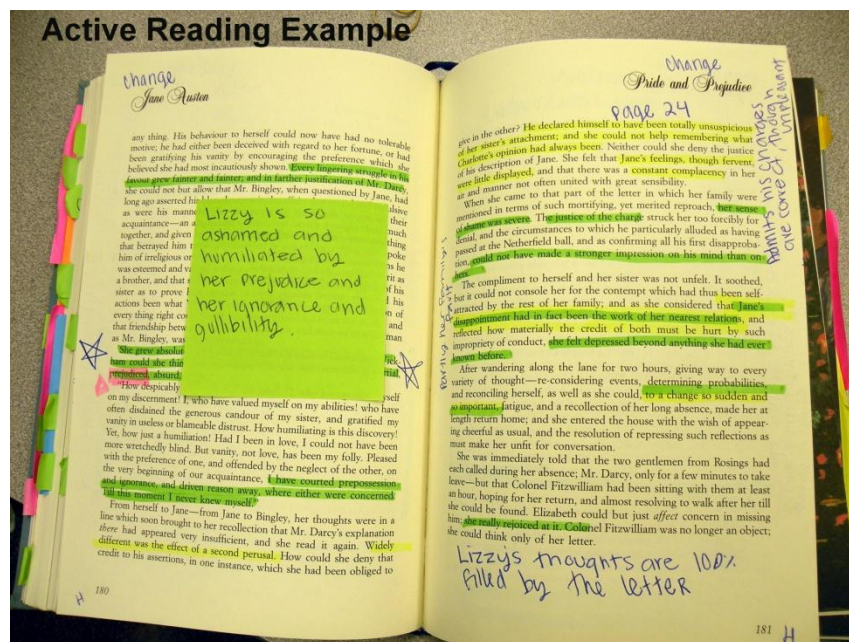 Active Reading Example
change
Jane Austen
any thing. His behaviour to herself could now have had no tolerable
motive; he had either been deceived with regard to her fortune, or had
been gratifying his vanity by encouraging the preference which she
believed she had most incautiously shown. Every lingering struggle in his
favour grew fainter and fainter; and in farther justification of Mr. Darcy,
she could not but allow that Mr. Bingley, when questioned by Jane, had
long ago asserted his
as were his mann
acquaintance—an a
together, and given
that betrayed him
him of irreligious or
was esteemed and v
a brother, and that
sister as to prove
actions been what
every thing right co
that friendship betw
as Mr. Bingley, was
She grew absolut
ham could she thin
prejudiced, absurd.
Lizzy is so
ashamed and
humiliated by
her prejudice and
her ignorance and
gullibility.
"How despicably
on my discernment! I, who have valued myself on my abilities! who have
often disdained the generous candour of my sister, and gratified my
vanity in useless or blameable distrust. How humiliating is this discovery!
Yet, how just a humiliation! Had I been in love, I could not have been
more wretchedly blind. But vanity, not love, has been my folly. Pleased
with the preference of one, and offended by the neglect of the other, on
the very beginning of our acquaintance, I have courted prepossession
and ignorance, and driven reason away, where either were concerned.
Till this moment I never knew myself."
From herself to Jane—from Jane to Bingley, her thoughts were in a
line which soon brought to her recollection that Mr. Darcy's explanation
there had appeared very insufficient, and she read it again. Widely
different was the effect of a second perusal. How could she deny that
credit to his assertions, in one instance, which she had been obliged to
180
H
change
Pride and Prejudice
page 24
give in the other? He declared himself to have been totally unsuspicious
of her sister's attachment; and she could not help remembering what
Charlotte's opinion had always been. Neither could she deny the justice
of his description of Jane. She felt that Jane's feelings, though fervent,
were little displayed, and that there was a constant complacency in her
air and manner not often united with great sensibility.
When she came to that part of the letter in which her family were
mentioned in terms of such mortifying, yet merited reproach, her sense
of shame was severe. The justice of the charge struck her too forcibly for
denial, and the circumstances to which he particularly alluded as having
passed at the Netherfield ball, and as confirming all his first disapproba-
tion, could not have made a stronger impression on his mind than on
hers.
The compliment to herself and her sister was not unfelt. It soothed,
but it could not console her for the contempt which had thus been self-
attracted by the rest of her family; and as she considered that Jane's
disappointment had in fact been the work of her nearest relations, and
reflected how materially the credit of both must be hurt by such
impropriety of conduct, she felt depressed beyond anything she had ever
known before.
After wandering along the lane for two hours, giving way to every
variety of thought—re-considering events, determining probabilities,
and reconciling herself, as well as she could, to a change so sudden and
so important, fatigue, and a recollection of her long absence, made her at
length return home; and she entered the house with the wish of appear-
ing cheerful as usual, and the resolution of repressing such reflections as
must make her unfit for conversation.
She was immediately told that the two gentlemen from Rosings had
each called during her absence; Mr. Darcy, only for a few minutes to take
leave—but that Colonel Fitzwilliam had been sitting with them at least
an hour, hoping for her return, and almost resolving to walk after her till
she could be found. Elizabeth could but just affect concern in missing
him; she really rejoiced at it. Colonel Fitzwilliam was no longer an object;
she could think only of her letter.
Admits his charges
are correct, though
unpleasant
Lizzy's thoughts are 100%
filled by the letter
181
H